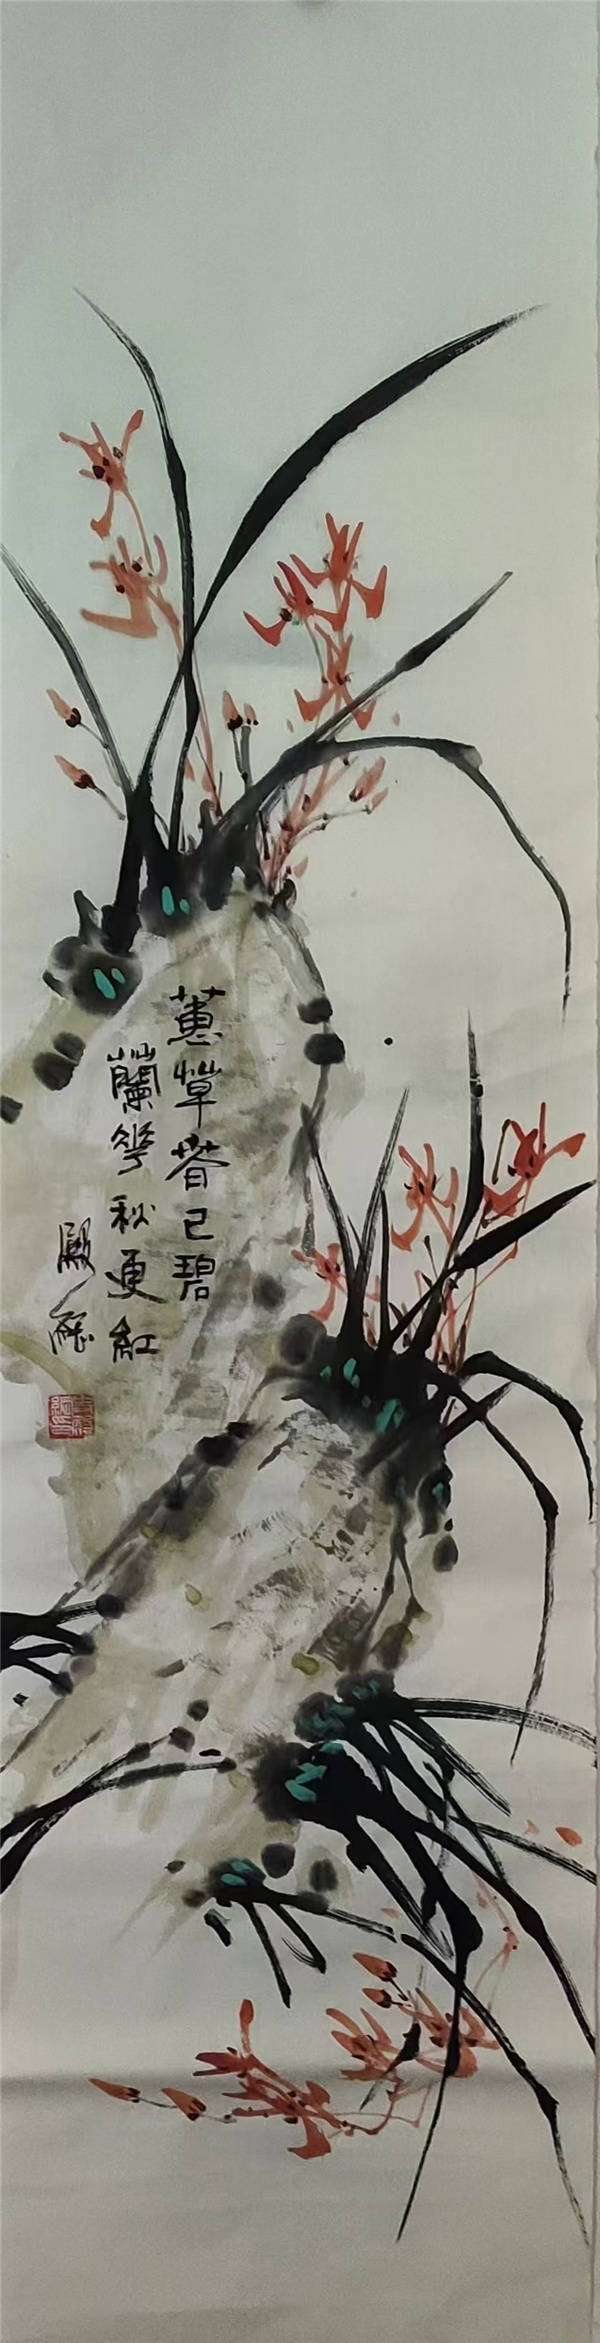 蕙草春已碧
蘭花秋更紅